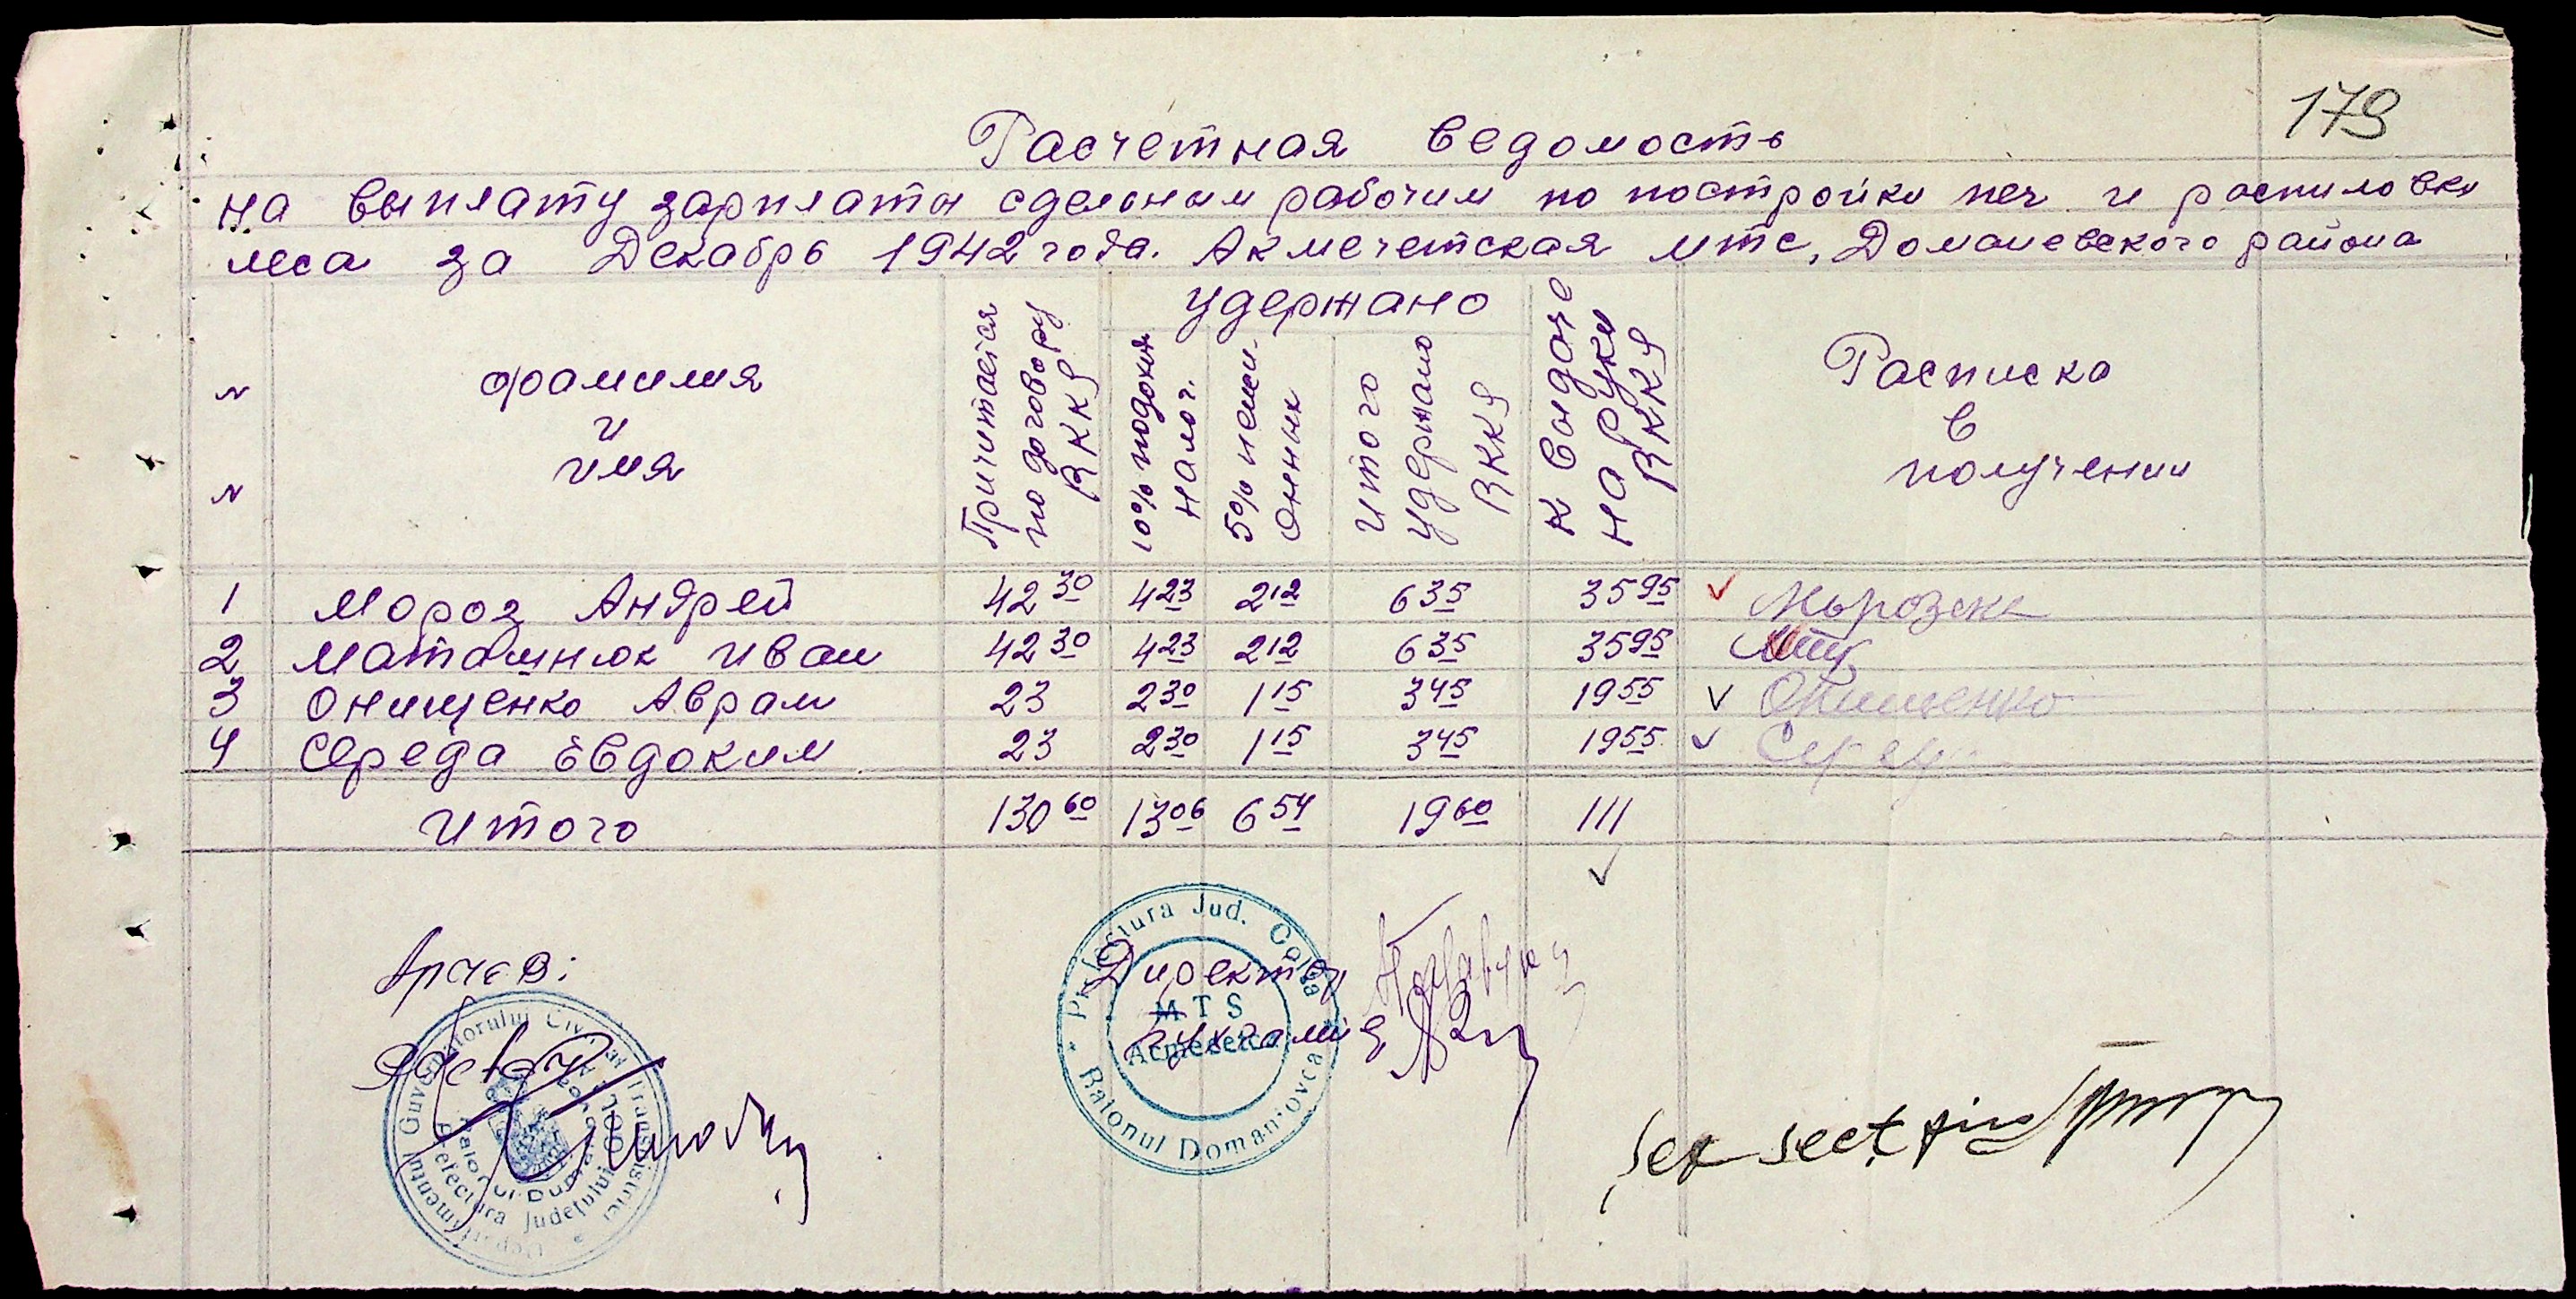 179
Расчетная ведомость
на выплату зарплаты сдельным рабочим по постройки печ и распиловки
леса за Декабрь 1942 года. Акмечетская мтс, Доманевского района
N N
фамилия и имя
Причитается по договору RKKS
удержано
10% подоходн налог.
5% пенси онных
итого удержано RKKS
к выдаче на руки RKKS
Расписка в получении
1 Мороз Андрей 42 30 4 23 2 12 6 35 35 95
2 Маташнюк Иван 42 30 4 23 2 12 6 35 35 95
3 Онищенко Аврам 23 2 30 1 15 3 45 19 55 Онищенко
4 Середа Евдоким 23 2 30 1 15 3 45 19 55
Итого 130 60 13 06 6 54 19 60 111
Директор
Бухгалтер
Prefectura Jud. Golta
MTS
Acmecetca
Raionul Domanovca
Guvernatorului Civil al Transnistriei
Prefectura Județului
Șef sect.